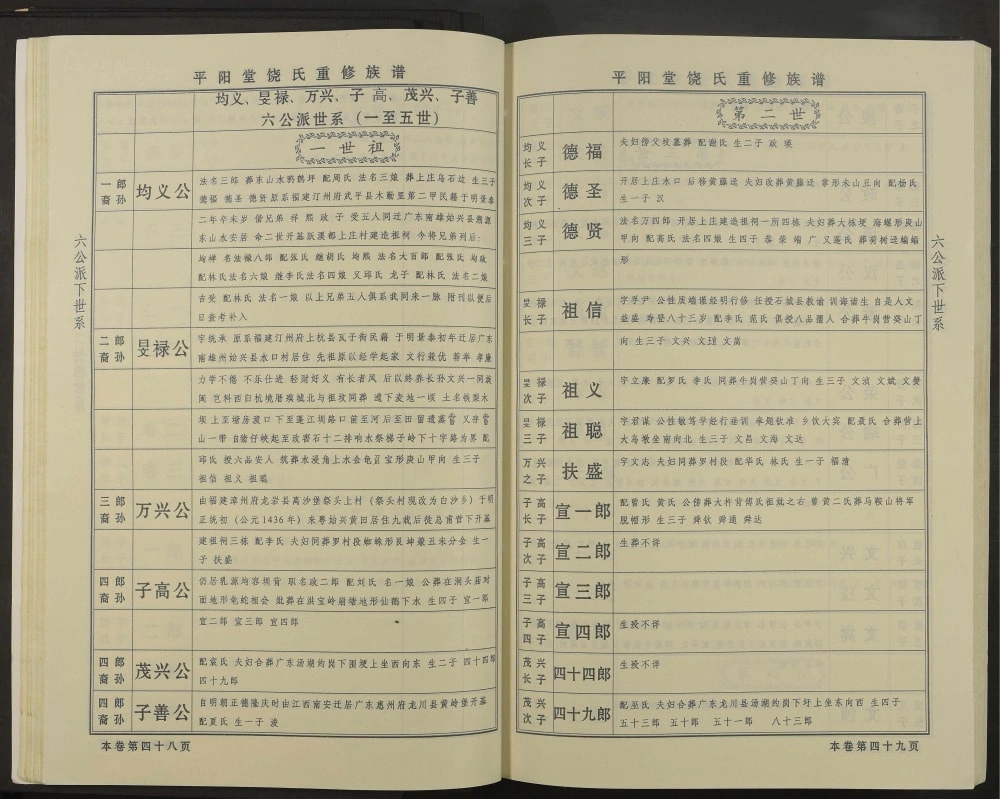 平阳堂饶氏重修族谱
均义、旻禄、万兴、子高、茂兴、子善
六公派世系（一至五世）
一世祖
六公派下世系
一郎裔孙
均义公
法名三郎 葬东山水鸦鹊坪 配周氏 法名三娘 葬上庄乌石迳 生三子
德福 德圣 德贤 原系福建汀州府武平县木勒里第二甲民籍 于明景泰
二年辛未岁 偕兄弟 祥 熙 政 子 受五人同迁广东南雄始兴县
东山水安居 命二世开基跃溪都上庄村建造祖祠 今将兄弟列后：
均祥 名法 八郎 配张氏 继胡氏 均熙 法名大百郎 配张氏 均政
配林氏法名六娘 继李氏法名四娘 又邱氏 龙子 配林氏 法名二娘
吉受 配林氏 法名一娘 以上兄弟五人俱系我同来一脉 附刊以便后
日查考补入
二郎裔孙
旻禄公
字统承 原系福建汀州府上杭县瓦子街民籍 于明景泰初年迁居广东
南雄州始兴县水口村居住 先祖原以经学起家 文行兼优 荐举孝廉
力学不倦 不乐仕进 轻财好义 有长者风 后以终养长孙文兴一同
山一带 自猪仔峡起至改窖石十二排响水祭梯子岭下十字路为界 配
邱氏 授六品安人 筑葬水浸角上水金龟 宝形庚山甲向 生三子
祖信 祖义 祖聪
三郎裔孙
万兴公
由福建漳州府龙岩县万沙堡祭头上村（祭头村现改为白沙乡）于明
正统初（公元1436年）来粤始兴黄田居住九载后徙总甫 下开基
建祖祠三栋 配李氏 夫妇同葬罗村段蜘蛛形艮坤兼丑未分金 生一
子 扶盛
四郎裔孙
子高公
仍居乳源均容坝背 职名政二郎 配刘氏 名一娘 公葬在洞头庙对
面地形龟蛇相会 妣葬在洪宝岭崩塘地形仙鹤下水 生四子 宣一郎
宣二郎 宣三郎 宣四郎
四郎裔孙
茂兴公
配袁氏 夫妇合葬广东汤湖的岗下围埂上坐西向东 生二子 四十四郎
四十九郎
四郎裔孙
子善公
自明朝正德隆庆时由江西南安迁居广东惠州府龙川县黄岭堡开基
配夏氏 生一子 凌
本卷第四十八页
平阳堂饶氏重修族谱
第二世
均义长子
德福
夫妇傍父坟墓葬 配谢氏 生二子 政 瑛
均义次子
德圣
开居上庄水口 后移黄藤迳 夫妇改葬黄藤迳 掌形未山丑向 配杨氏
生一子 汉
均义三子
德贤
法名万四郎 开居上庄建造祖祠一所四栋 夫妇葬大栋埂 海螺形庚山
甲向 配高氏 法名四娘 生四子 恭 荣 端 广 又莲氏 葬荀树迳蝙蝠
形
旻禄长子
祖信
字孚尹 公性质墙谨经明行修 任授石城县教谕 训诲诸生 自是人文
益盛 寿登八十三岁 配李氏 范氏 俱授八品孺人 合葬牛岗营癸山丁
向 生三子 文兴 文 文嵩
旻禄次子
祖义
字立廉 配罗氏 李氏 同葬牛岗营癸山丁向 生三子 文浈 文斌 文赞
旻禄三子
祖聪
字君谋 公性敏笃学经行垂训 来题钦准 乡饮大宾 配聂氏 合葬营上
大乌墩坐南向北 生三子 文昌 文海 文达
万兴之子
扶盛
字文志 夫妇同葬罗村段 配华氏 林氏 生一子 福清
子高长子
宣一郎
配曾氏 黄氏 公傍葬大杵背傅氏祖妣之右 曾黄二氏葬马鞍山将军
脱帽形 生三子 舜钦 舜通 舜达
子高次子
宣二郎
生葬不详
子高三子
宣三郎
子高四子
宣四郎
生殁不详
茂兴长子
四十四郎
生殁不详
茂兴次子
四十九郎
配巫氏 夫妇合葬广东龙川县汤湖的岗下圩上坐东向西 生四子
五十三郎 五十郎 五十一郎 八十三郎
六公派下世系
本卷第四十九页